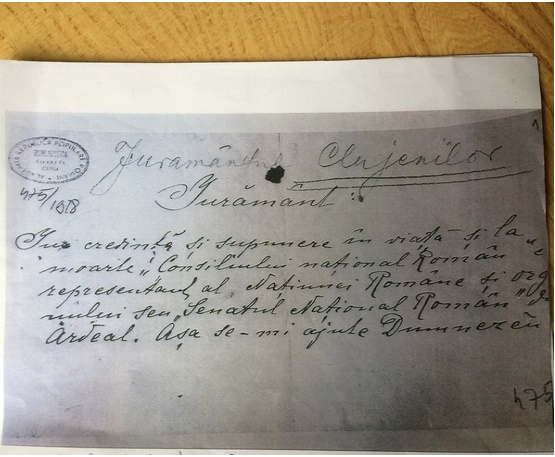 ACADEMIA REPUBLICII POPULARE ROMÂNE
BIBLIOTECA
475/1918
Jurământul Clujenilor
Jurământ:
Jur credință și supunere în viață și la
moarte „Consiliului național Român
representant al Națiunei Române și org
nului seu „Senatul Național Român"
Ardeal. Așa se-mi ajute Dumnezeu
475